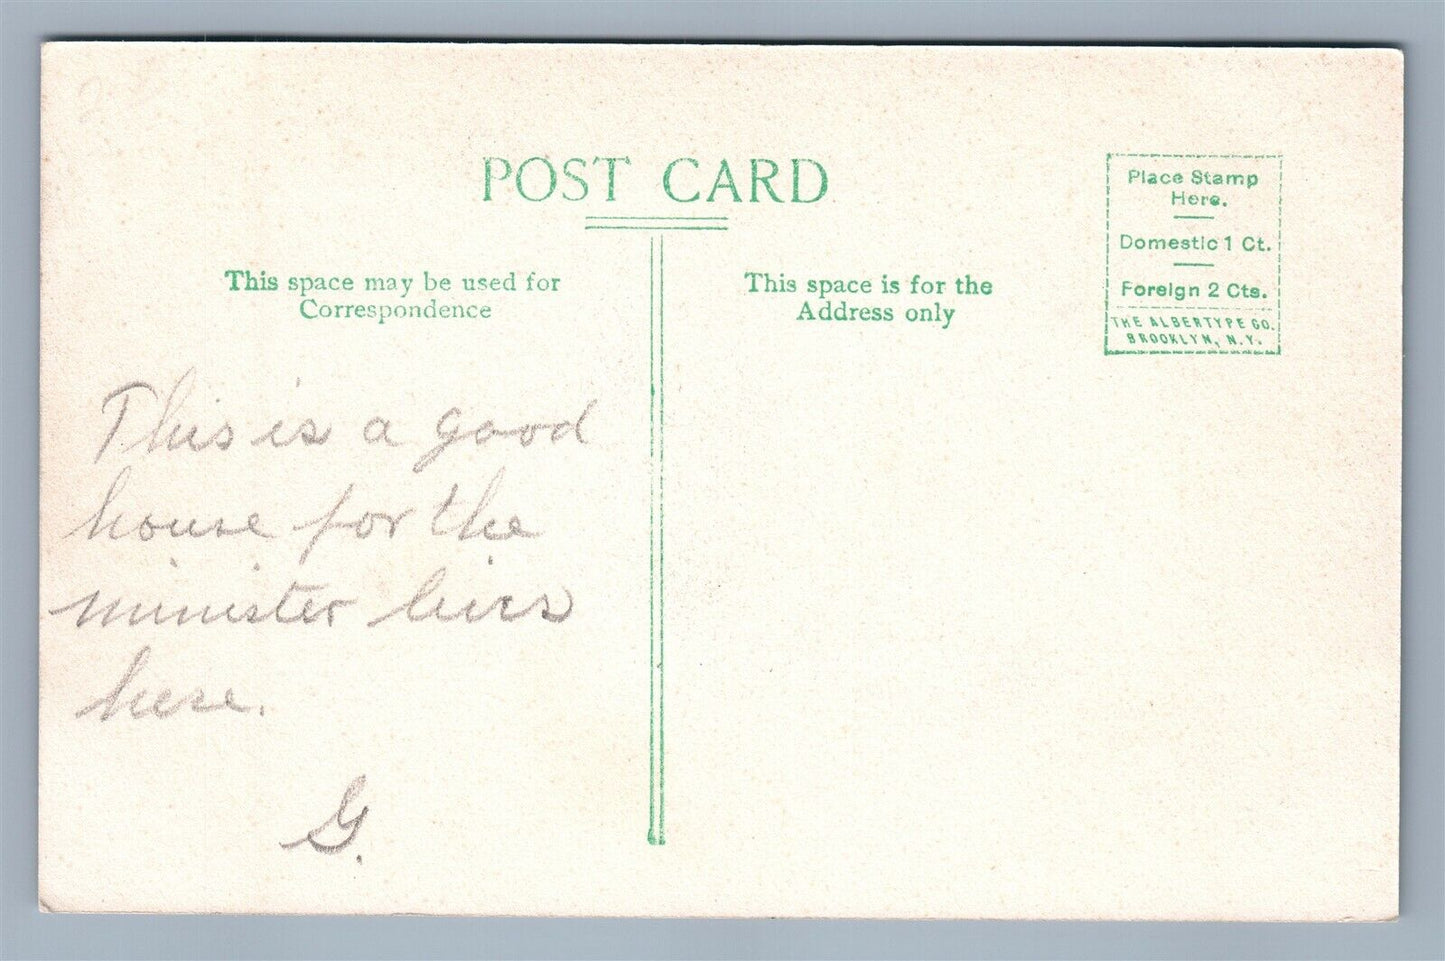 POST CARD
This space may be used for
Correspondence
This space is for the
Address only
Place Stamp
Here.
Domestic 1 Ct.
Foreign 2 Cts.
THE ALBERTYPE CO.
BROOKLYN, N.Y.
This is a good
house for the
minister lives
here.
G.